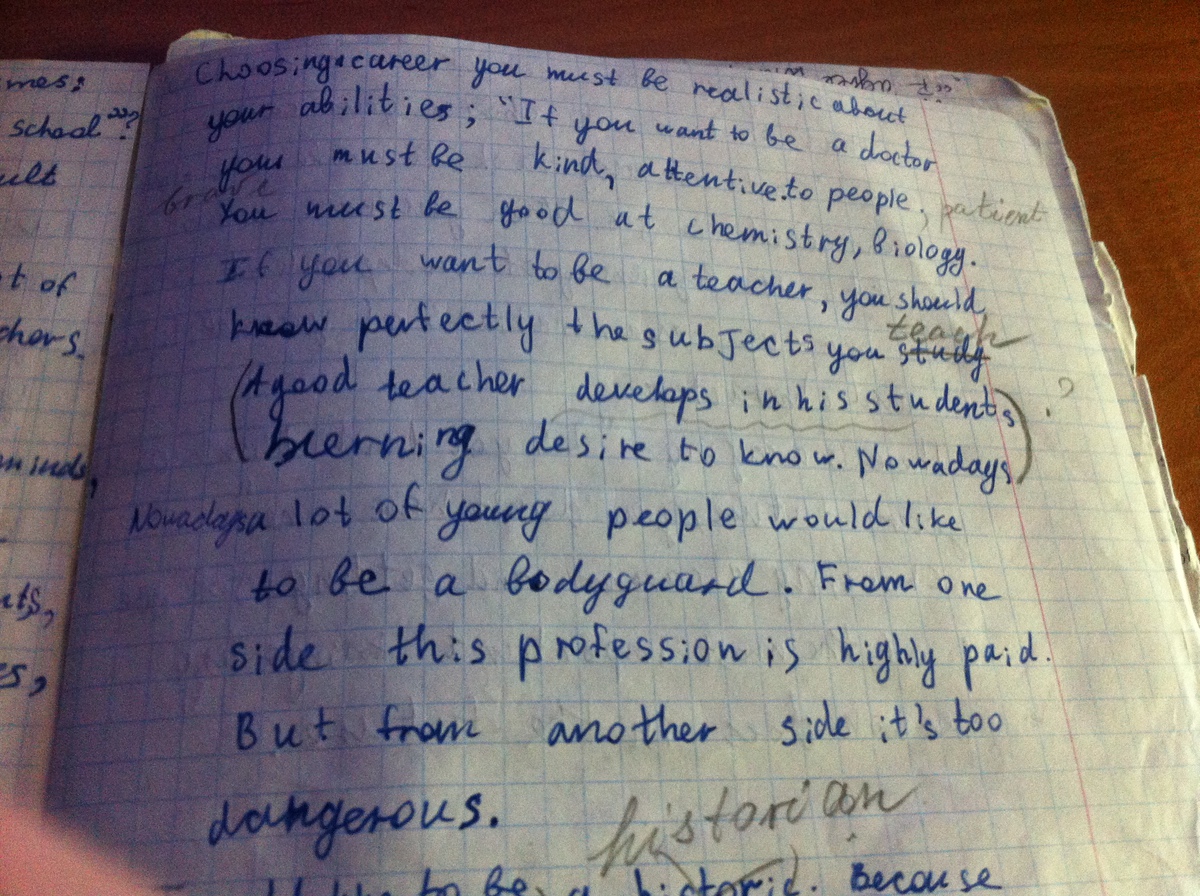 mes:
school"?
ult
t of
chers.
minds,
uts,
es,
Choosing a career you must be realistic about
your abilities; "If you want to be a doctor
your must be kind, attentive to people, patient
brave
You must be good at chemistry, biology.
If you want to be a teacher, you should
know perfectly the subjects you study
teach
(A good teacher develops in his students) . ?
burning desire to know. Nowadays
Nowadays a lot of young people would like
to be a bodyguard. From one
side this profession is highly paid.
But from another side it's too
dangerous.
historian
to be a historic. Because